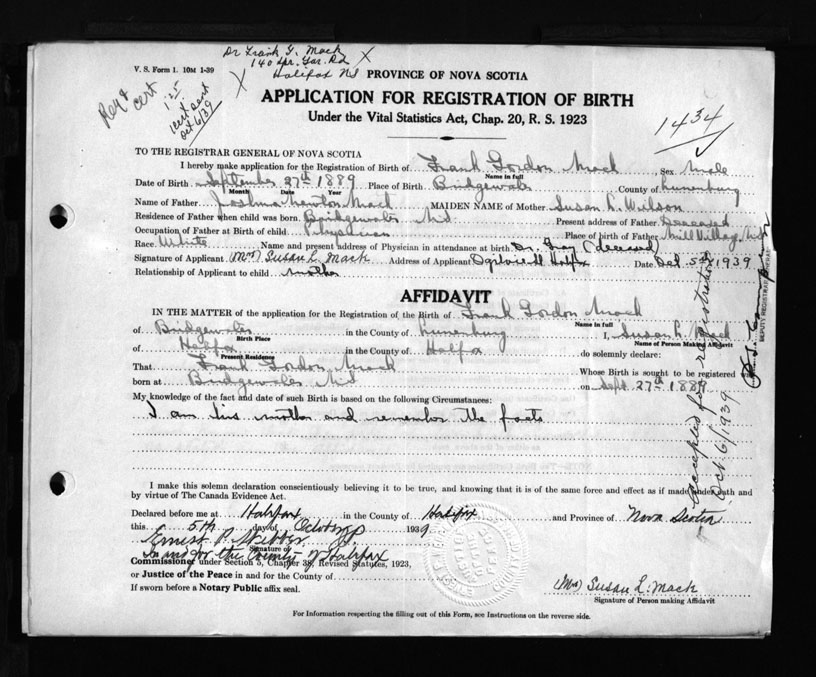 Dr Frank G. Mack
140 Spr. Gar. Rd
Halifax NS
V. S. Form 1. 10M 1-39
PROVINCE OF NOVA SCOTIA
Rec't cert
1.25
cert sent
Oct 6/39
APPLICATION FOR REGISTRATION OF BIRTH
Under the Vital Statistics Act, Chap. 20, R. S. 1923
1434
TO THE REGISTRAR GENERAL OF NOVA SCOTIA
I hereby make application for the Registration of Birth of Frank Gordon Mack Sex Male
Name in full
Date of Birth September 27th 1889 Place of Birth Bridgewater County of Lunenburg
Month Date Year
Name of Father Joshua Newton Mack MAIDEN NAME of Mother Susan L. Wilson
Residence of Father when child was born Bridgewater NS Present address of Father Deceased
Occupation of Father at Birth of child Physician Place of birth of Father Mill Village, NS
Race White Name and present address of Physician in attendance at birth Dr. Gray (deceased)
Signature of Applicant (Mrs) Susan L. Mack Address of Applicant Ogilvie St Halifax Date Oct 5th 1939
Relationship of Applicant to child mother
AFFIDAVIT
IN THE MATTER of the application for the Registration of the Birth of Frank Gordon Mack
Name in full
of Bridgewater in the County of Lunenburg I, Susan L. Mack
Birth Place Name of Person Making Affidavit
of Halifax in the County of Halifax do solemnly declare:
Present Residence
That Frank Gordon Mack Whose Birth is sought to be registered was
born at Bridgewater NS on Sept. 27th 1889
My knowledge of the fact and date of such Birth is based on the following Circumstances:
I am his mother and remember the facts
I make this solemn declaration conscientiously believing it to be true, and knowing that it is of the same force and effect as if made under oath and
by virtue of The Canada Evidence Act.
Declared before me at Halifax in the County of Halifax and Province of Nova Scotia
this 5th day of October 1939
Ernest P. Webber J.P.
Signature of
In and for the County of Halifax
Commissioner under Section 5, Chapter 38, Revised Statutes, 1923,
or Justice of the Peace in and for the County of
If sworn before a Notary Public affix seal.
(Mrs) Susan L. Mack
Signature of Person making Affidavit
For Information respecting the filling out of this Form, see Instructions on the reverse side.
Accepted for registration
Oct 6/1939
DEPUTY REGISTRAR GENERAL